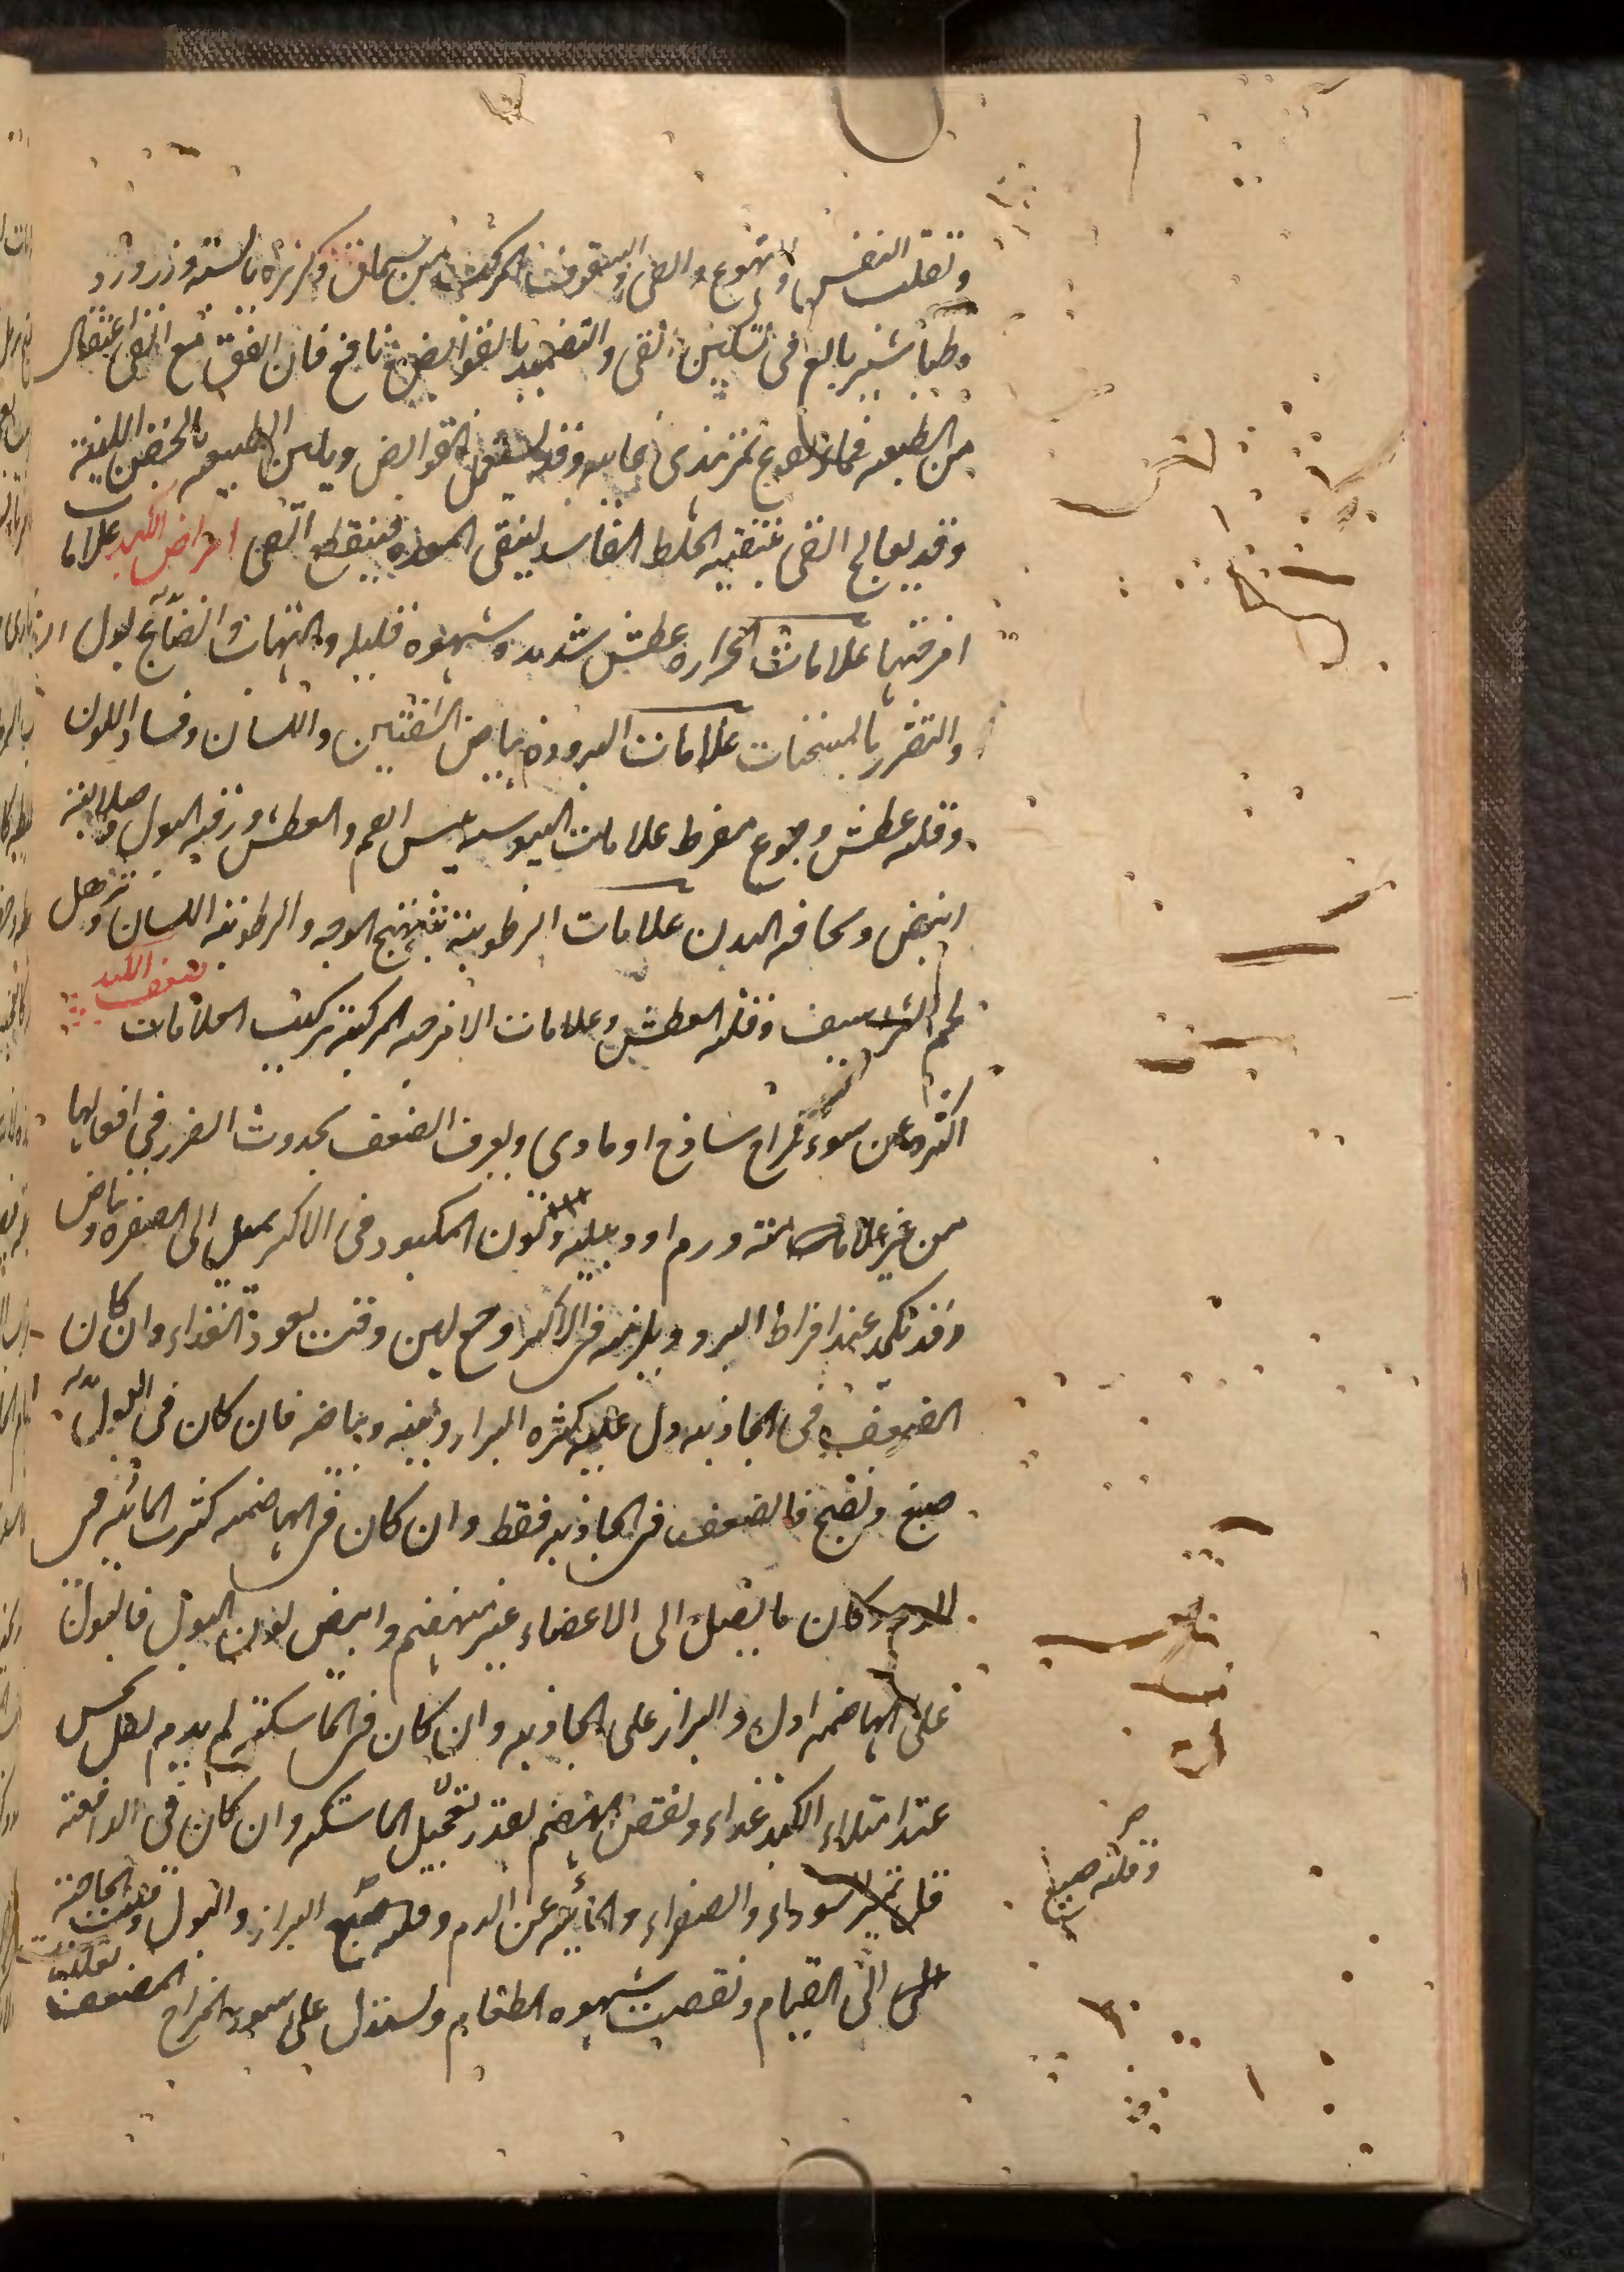 وتقلب النفس والتهوع والقی والسفوف المركب من سماق وكزبره يابسه وزرورد
وطباشير بالع فی تسكين القی والتضميد بالقوابض نافع فان اتفق مع القی اعتقال
من الطبيعه فماء نقوع تمرهندی غايه وقد يستعمل القوابض ويلين الطبيعه بالحقن اللينه
وقد يعالج القی بتنقيه الخلط الفاسد لينقی المعده فينقطع القی امراض الكبد علامات
امزجتها علامات الحراره عطش شديد وشهوه قليله والتهاب وانصباغ بول
والتضرر بالمسخنات علامات البروده بياض الشفتين واللسان وفساد اللون
وقله عطش وجوع مفرط علامات اليبوسه يبس الفم والعطش ورقه البول وصلابه
النبض ونحافه البدن علامات الرطوبه تهيج الوجه والرطوبه اللسان وترهل
لحم الشراسيف وقله العطش وعلامات الامزجه المركبه تركيب العلامات ضعف الكبد
اكثره عن سوء مزاج ساذج او مادی ويعرف الضعف بحدوث الضرر فی افعالها
من غير علامات ورم او دبيله ولون المكبود فی الاكثر يميل الی الصفره وبياض
وقد تكمد عند افراط البرد ويلزمه فی الاكثر وجع لين وقت نفوذ الغذاء وان كان
الضعف فی الجاذبه دل عليه كثره البراز ولينه وبياضه فان كان فی البول
صبغ ونضج فالضعف فی الجاذبه فقط وان كان فی الهاضمه كثرت المائيه فی
الدم وكان ما يصل الی الاعضاء غير منهضم وابيض لون البول فالبول
علی الهاضمه ادل والبراز علی الجاذبه وان كان فی الماسكه لم يدم ثقل يحس
عند امتلاء الكبد غذاء ونقص الهضم بقدر تعجيل الماسكه وان كان فی الدافعه
قل تميز السوداء والصفراء والمائيه عن الدم وقله صبغ البراز والبول وقلت الحاجه
الی القيام ونقصت شهوه الطعام ويستدل علی سوء المزاج المضعف
وقله صبغ